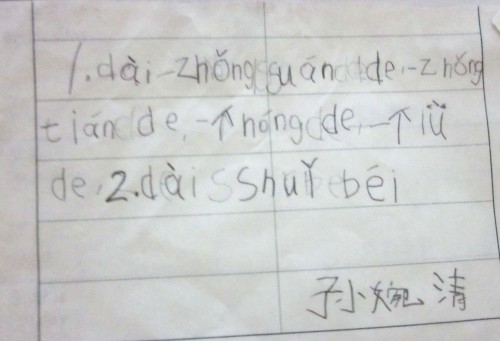 1.dài一zhǒng guán de,一zhǒng
tián de,一个hóng de,一个lǜ
de,2.dài Shuǐ béi
孙婉清